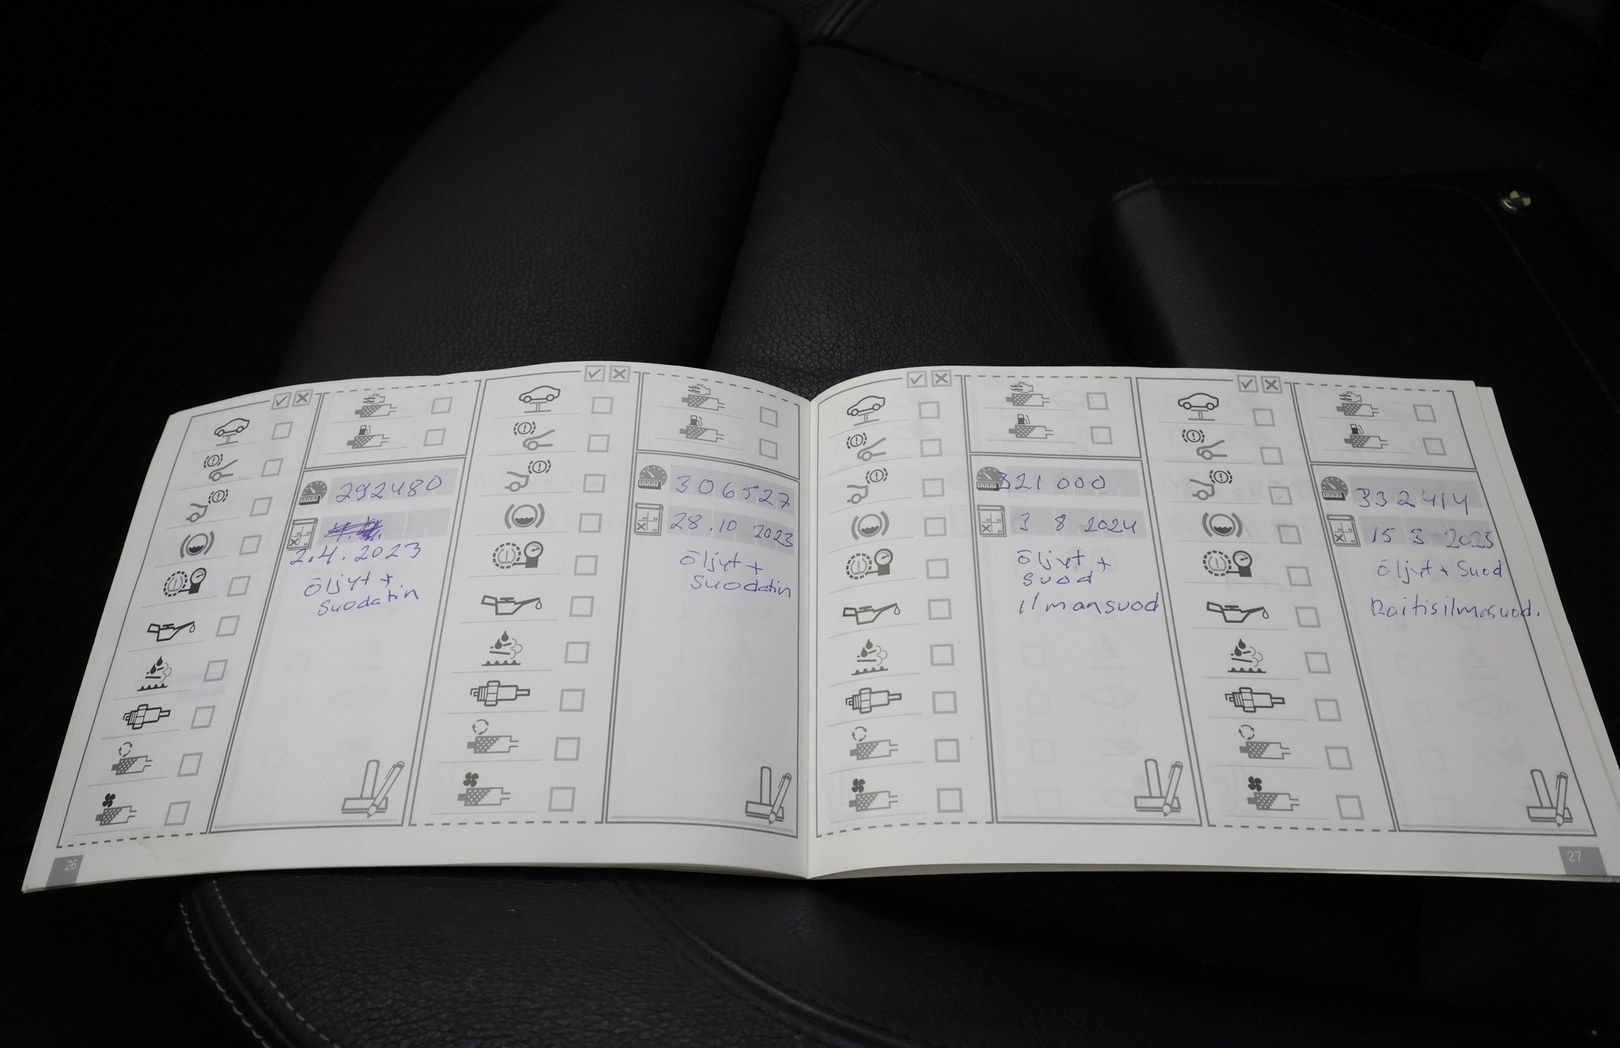 292480
2.4.2023
öljyt +
suodatin
306527
28.10 2023
öljyt +
suodatin
321000
3 8 2024
öljyt +
suod
ilmansuod
332414
15 3 2025
öljyt + suod
Raitisilmasuod.
26
27